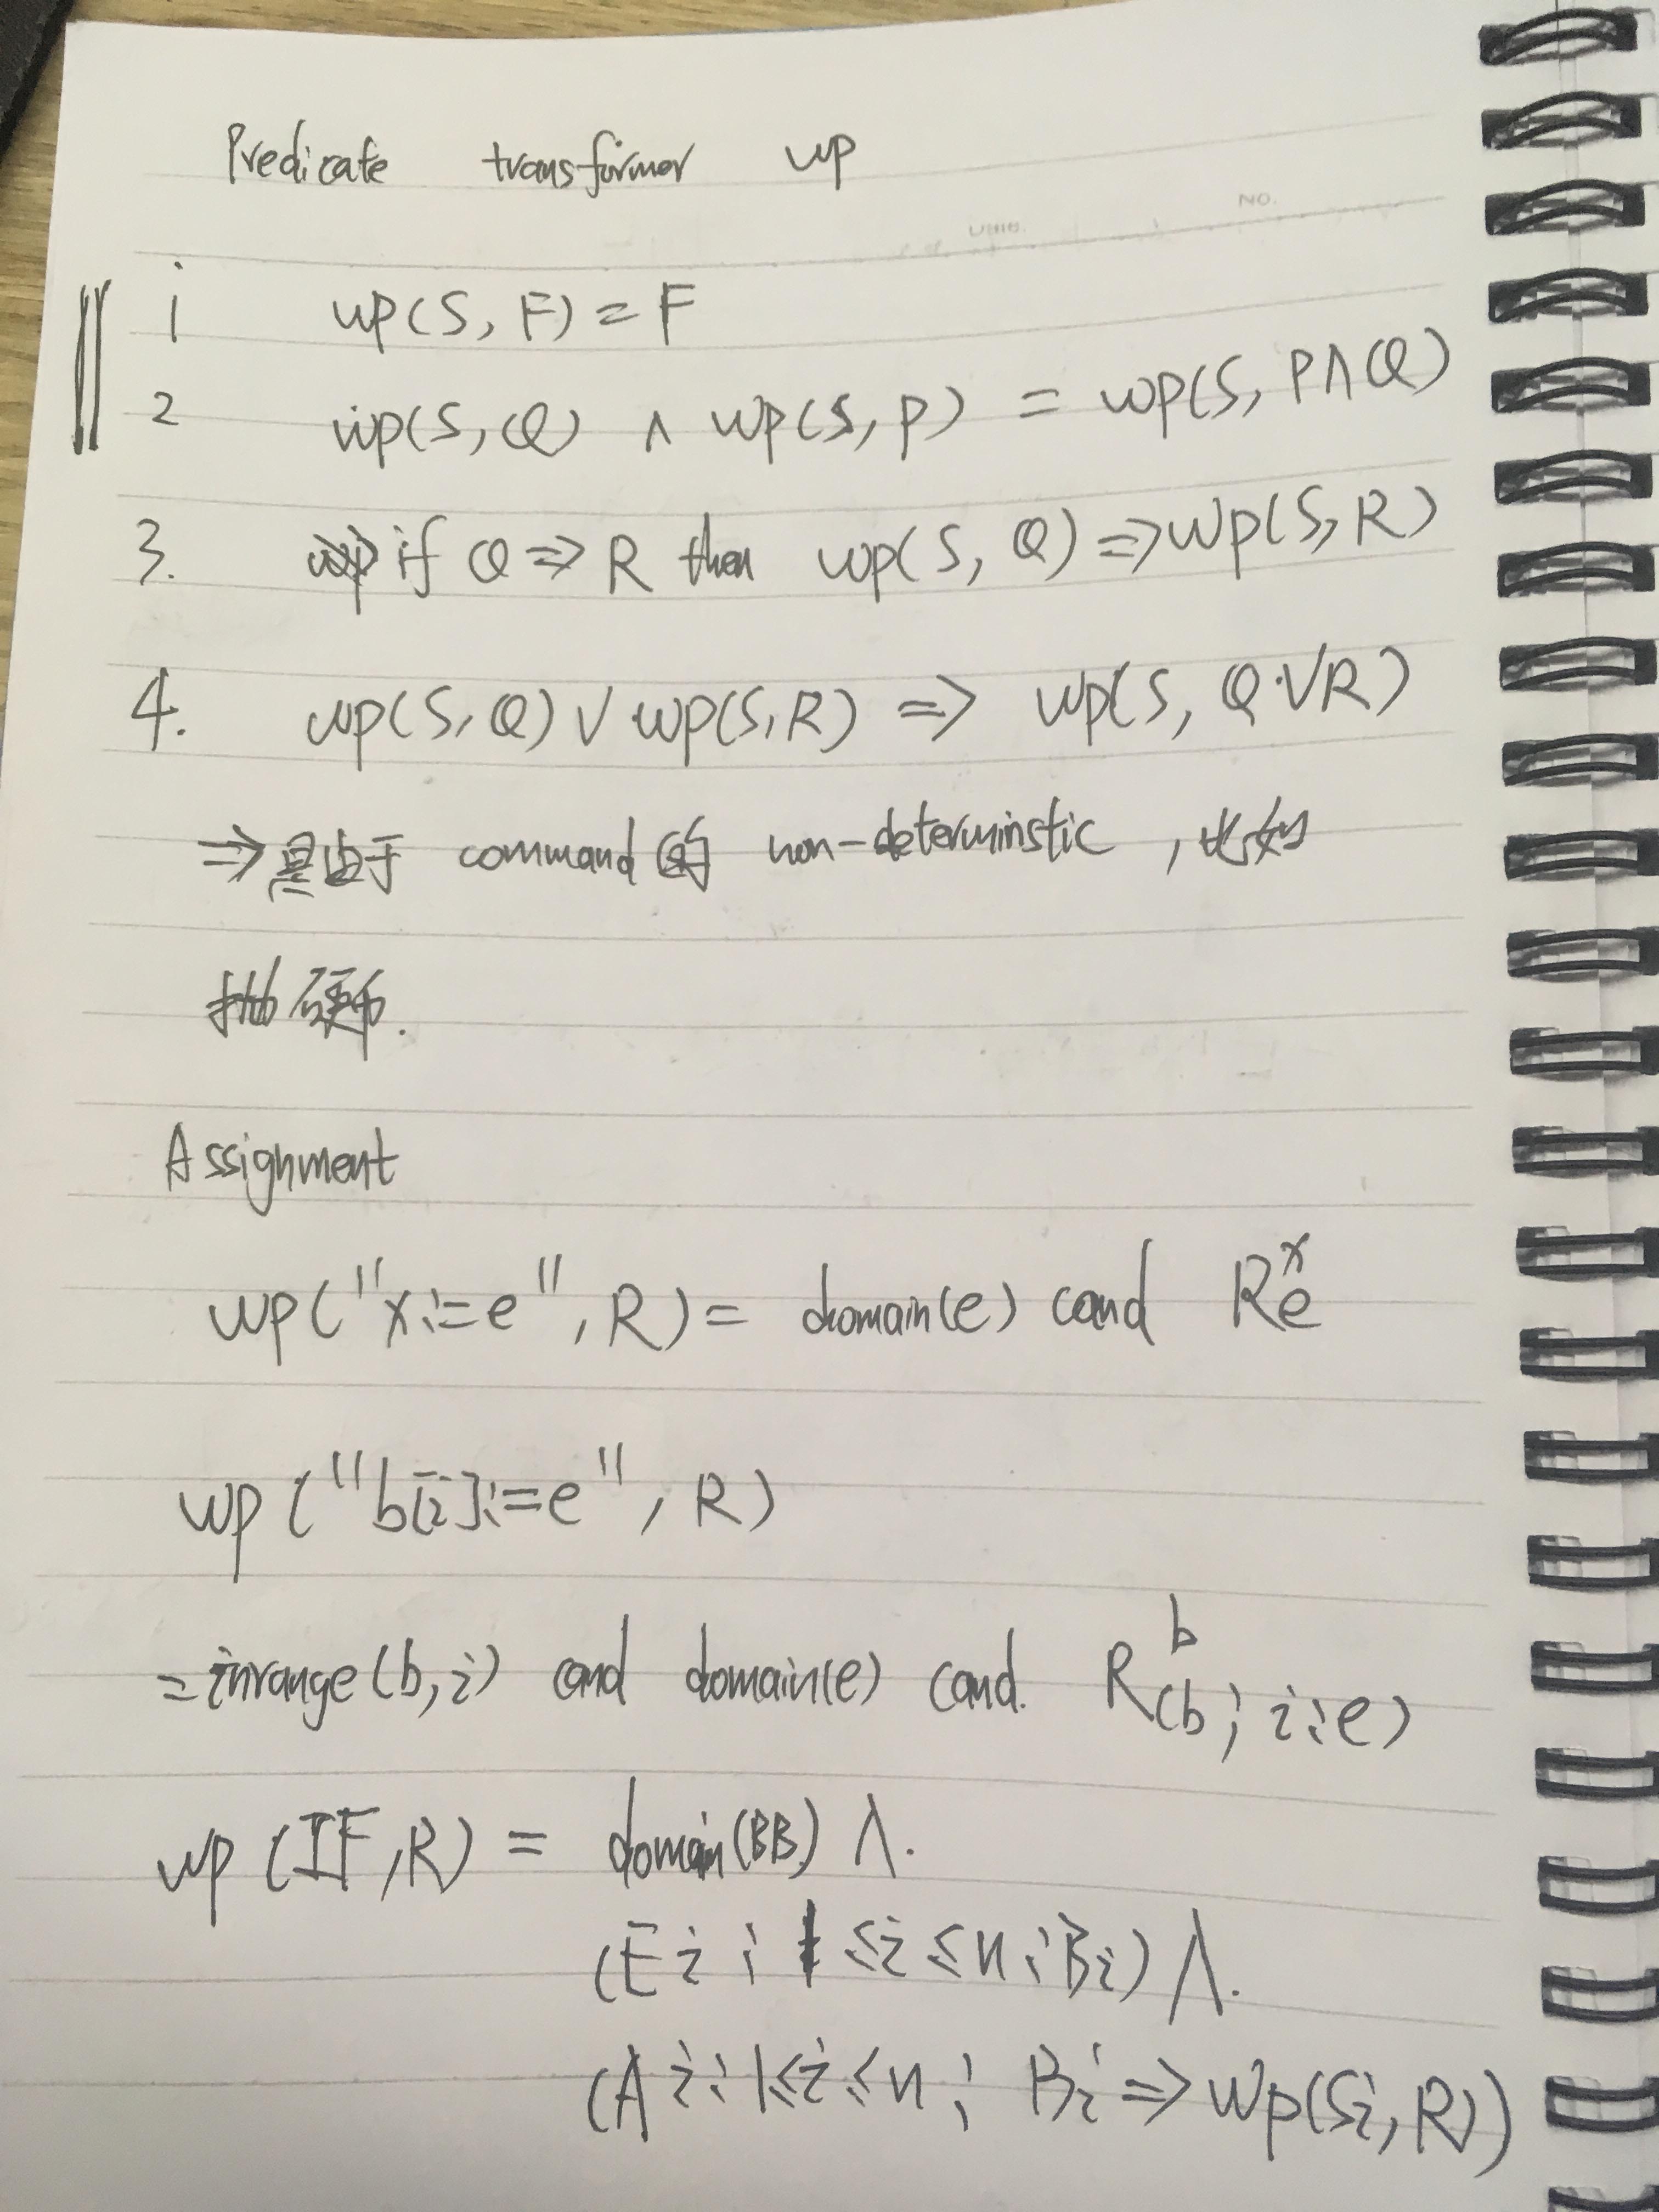 Predicate transformer wp
NO.
1 wp(S, F) = F
2 wp(S, Q) ∧ wp(S, P) = wp(S, P∧Q)
3. if Q ⇒ R then wp(S, Q) ⇒ wp(S, R)
4. wp(S, Q) ∨ wp(S, R) ⇒ wp(S, Q∨R)
⇒ 是由于 command 的 non-deterministic , 比如
抛硬币.
Assignment
wp("x:=e", R) = domain(e) cand R^x_e
wp("b[i]:=e", R)
= inrange(b, i) cand domain(e) cand. R^b_(b; i:e)
wp(IF, R) = domain(BB) ∧.
(E i: 1≤i≤n: Bi) ∧.
(A i: 1≤i≤n: Bi ⇒ wp(Si, R))